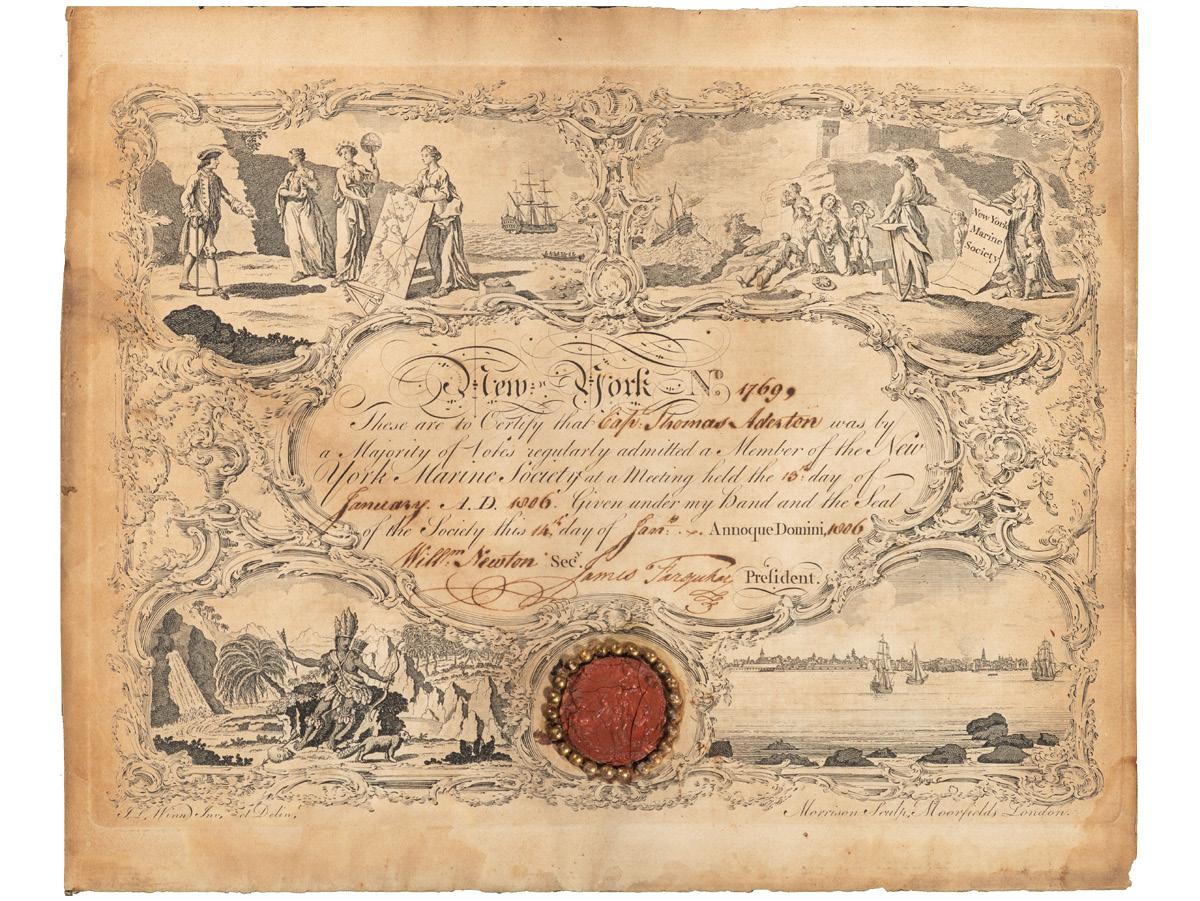 New York
Marine
Society
New York No. 1769,
These are to Certify that Capt. Thomas Aderton was by
a Majority of Votes regularly admitted a Member of the New
York Marine Society at a Meeting held the 13th day of
January A.D. 1806. Given under my Hand and the Seal
of the Society this 14th day of Jany. Annoque Domini, 1806
Willm. Newton Secy. James Farquhar President.
Inv. et Delin,
Morrison Sculp, Moorfields London.